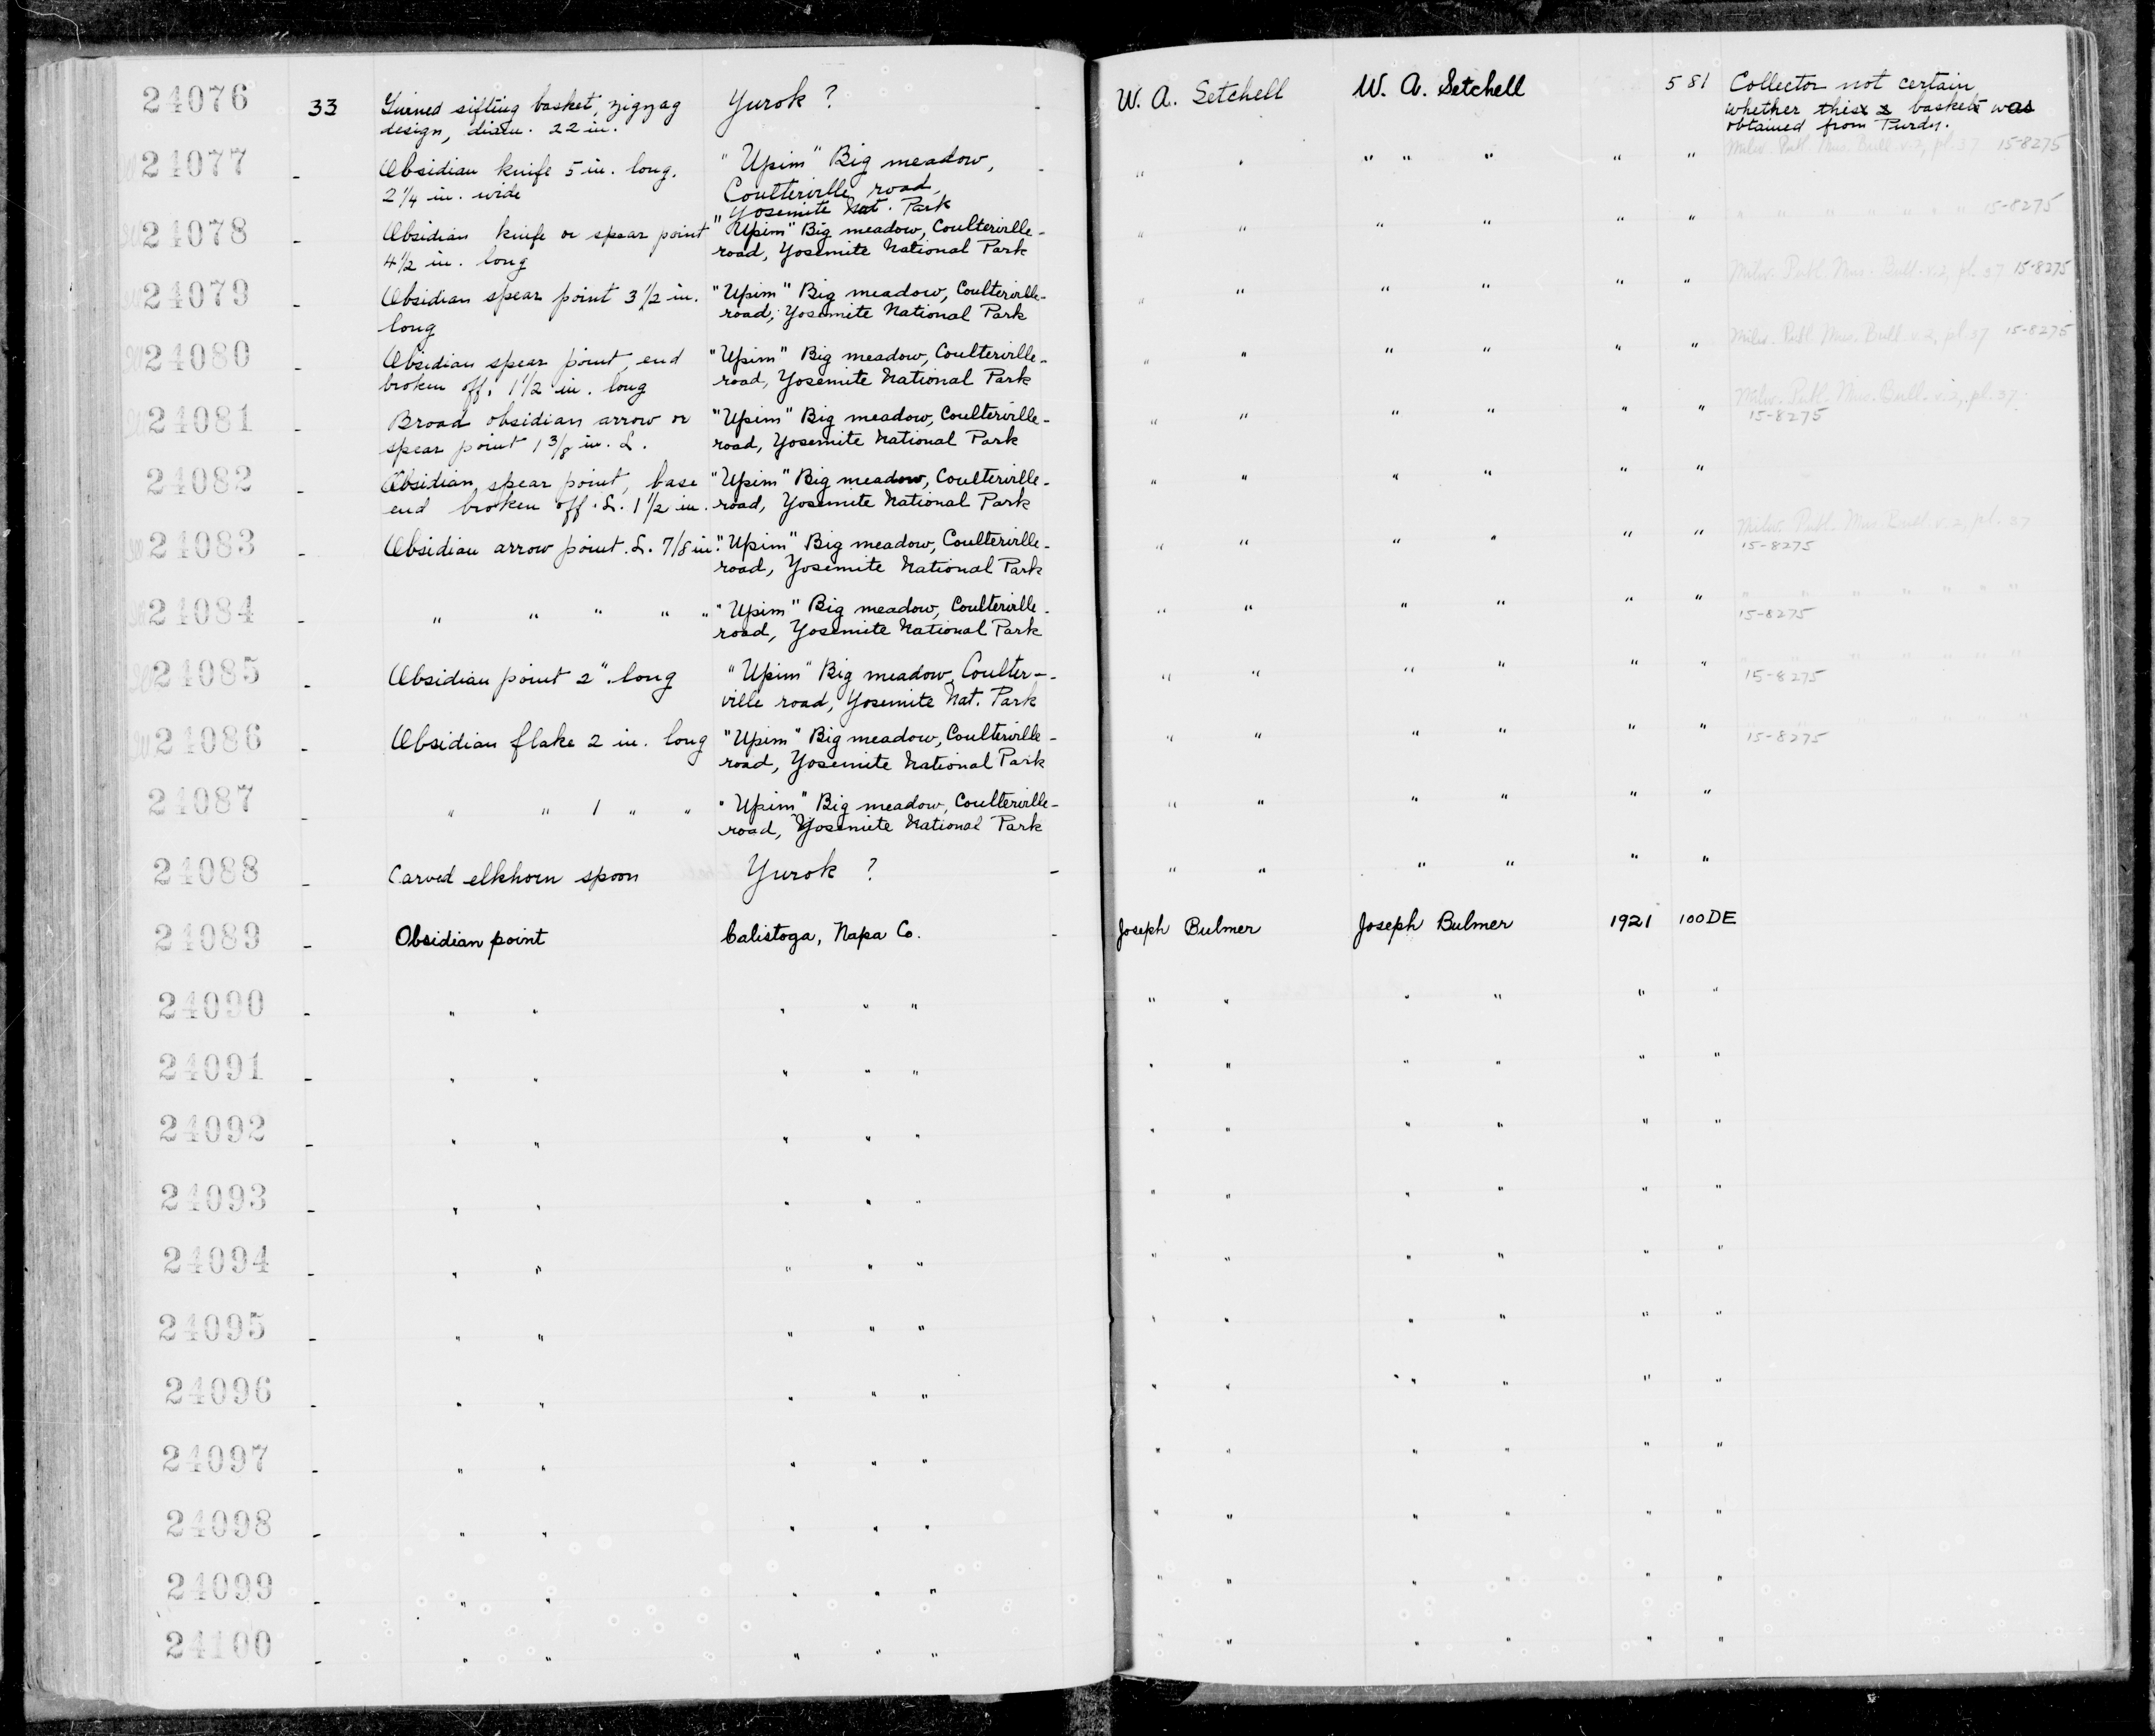 24076 33 Twined sifting basket, zigzag Yurok ? - W. A. Setchell W. A. Setchell 581 Collector not certain
design, diam. 22 in. whether this basket was
obtained from Purdy.
24077 - Obsidian knife 5 in. long. "Upim" Big meadow, - " " " " " " " Milw. Publ. Mus. Bull. v.2, pl. 37 15-8275
2 1/4 in. wide Coulterville road,
Yosemite Nat. Park
24078 - Obsidian knife or spear point "Upim" Big meadow, Coulterville- " " " " " " " " " " " " " 15-8275
4 1/2 in. long road, Yosemite National Park
24079 - Obsidian spear point 3 1/2 in. "Upim" Big meadow, Coulterville- " " " " " " Milw. Publ. Mus. Bull. v.2, pl. 37 15-8275
long road, Yosemite National Park
24080 - Obsidian spear point, end "Upim" Big meadow, Coulterville- " " " " " " Milw. Publ. Mus. Bull. v.2, pl 37 15-8275
broken off, 1 1/2 in. long road, Yosemite National Park
24081 - Broad obsidian arrow or "Upim" Big meadow, Coulterville- " " " " " " Milw. Publ. Mus. Bull. v.2, pl. 37.
spear point 1 3/8 in. L. road, Yosemite National Park 15-8275
24082 - Obsidian spear point, base "Upim" Big meadow, Coulterville- " " " " " "
end broken off. L. 1 1/2 in. road, Yosemite National Park
24083 - Obsidian arrow point. L. 7/8 in. "Upim" Big meadow, Coulterville- " " " " " " Milw. Publ. Mus. Bull. v.2, pl. 37
road, Yosemite National Park 15-8275
24084 - " " " " " "Upim" Big meadow, Coulterville- " " " " " " " " " " " " "
road, Yosemite National Park 15-8275
24085 - Obsidian point 2" long "Upim" Big meadow, Coulter- " " " " " " " " " " " " "
ville road, Yosemite Nat. Park 15-8275
24086 - Obsidian flake 2 in. long "Upim" Big meadow, Coulterville- " " " " " " " " " " " " "
road, Yosemite National Park 15-8275
24087 - " " 1 " " "Upim" Big meadow, Coulterville- " " " " " "
road, Yosemite National Park
24088 - Carved elkhorn spoon Yurok ? - " " " " " "
24089 - Obsidian point Calistoga, Napa Co. - Joseph Bulmer Joseph Bulmer 1921 100DE
24090 - " " " " " " " " " " "
24091 - " " " " " " " " " " "
24092 - " " " " " " " " " " "
24093 - " " " " " " " " " " "
24094 - " " " " " " " " " " "
24095 - " " " " " " " " " " "
24096 - " " " " " " " " " " "
24097 - " " " " " " " " " " "
24098 - " " " " " " " " " " "
24099 - " " " " " " " " " " "
24100 - " " " " " " " " " " "